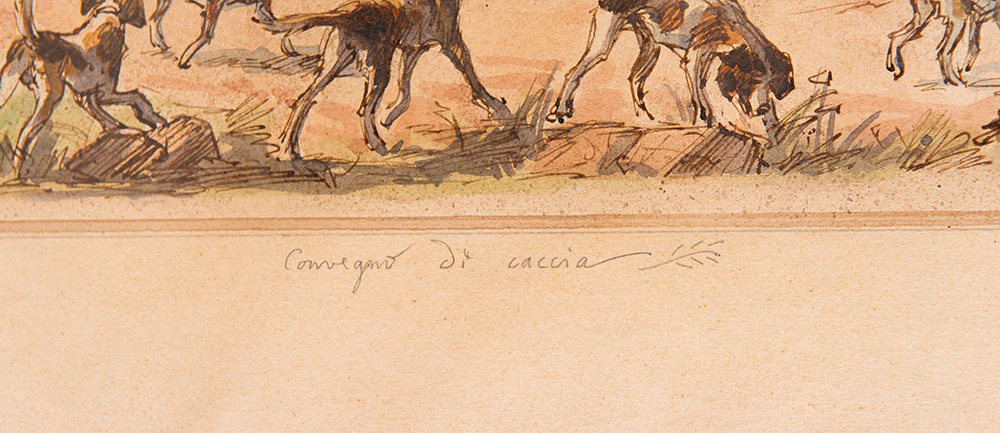 Convegno di caccia